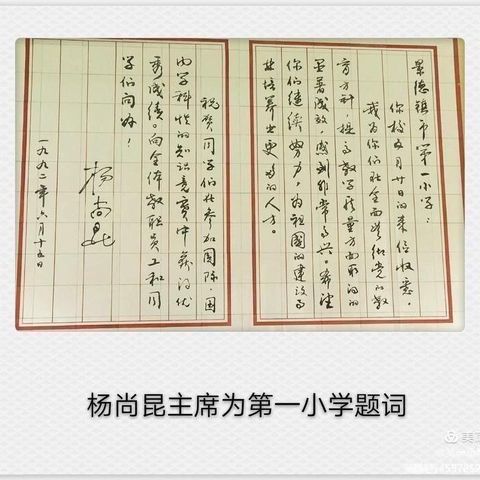 景德镇市第一小学：
你校五月廿日的来信收悉，
我为你们在全面贯彻党的教
育方针，提高教学质量方面取得的
显著成效，感到非常高兴。希望
你们继续努力，为祖国的建设事
业培养出更多的人才。
祝贺同学们在参加国际、国
内学科性的知识竞赛中获得优
秀成绩。向全体教职员工和同
学们问好！
杨尚昆
一九九二年六月十五日
杨尚昆主席为第一小学题词